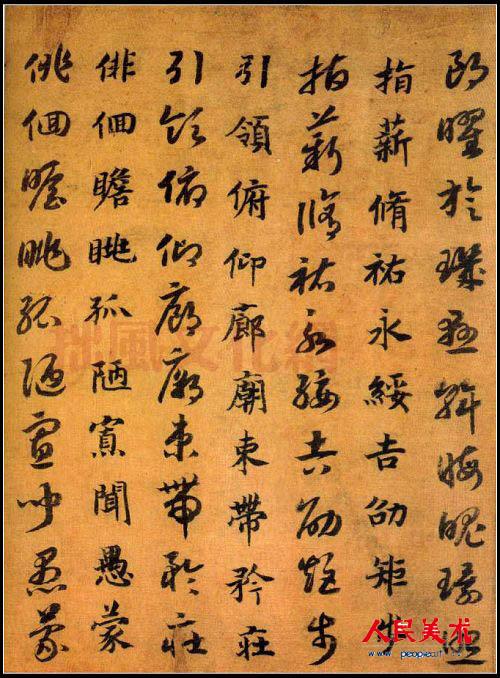 朗曜旋璣懸斡晦魄環照
指薪脩祐永綏吉劭矩步
指薪脩祐永綏吉劭矩步
引領俯仰廊廟束帶矜莊
引領俯仰廊廟束帶矜莊
俳佪瞻眺孤陋寡聞愚蒙
俳佪瞻眺孤陋寡聞愚蒙
拙風文化網
人民美术